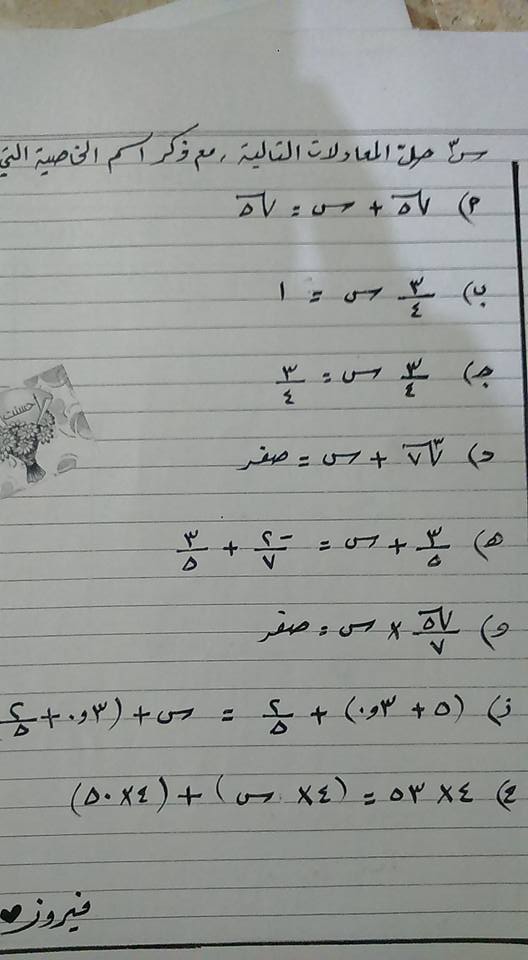 س٣ حل المعادلات التالية , مع ذكر اسم الخاصية التي
أ) √٥ + س = √٥
ب) ٣/٤ س = ١
ج) ٣/٤ س = ٣/٤
د) ∛٧ + س = صفر
ه) ٣/٥ + س = -٢/٧ + ٣/٥
و) √٥/٧ × س = صفر
ز) (٥ + ٠,٣) + ٢/٥ = س + (٠,٣ + ٢/٥
ح) ٤ × ٥٣ = (٤ × س) + (٤ × ٥٠)
احسنت
فيروز ♥